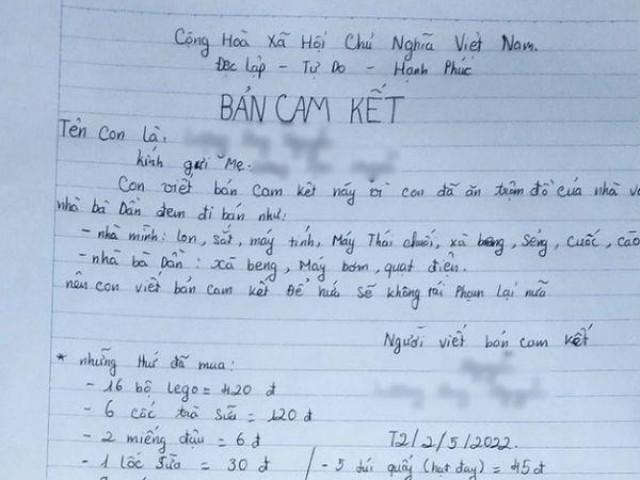 Cộng Hoà Xã Hội Chủ Nghĩa Việt Nam.
Độc Lập - Tự Do - Hạnh Phúc
BẢN CAM KẾT
Tên Con là.
kính gửi Mẹ.
Con viết bản cam kết này vì con đã ăn trộm đồ của nhà và
nhà bà Dần đem đi bán như:
- nhà mình: lon, sắt, máy tính, Máy Thái chuối, xà beng, Sẻng, Cuốc, cào
- nhà bà Dần: xà beng, Máy bơm, quạt điện.
nên con viết bản cam kết Để hứa Sẽ không tái Phạm lại nữa
Người viết bản cam kết
* những thứ đã mua:
- 16 bộ lego = 420 đ
- 6 cốc trà sữa = 120 đ
- 2 miếng đậu = 6 đ T2/2/5/2022.
- 1 lốc Sữa = 30 đ / - 5 túi quẩy (hạt đay) = 45 đ